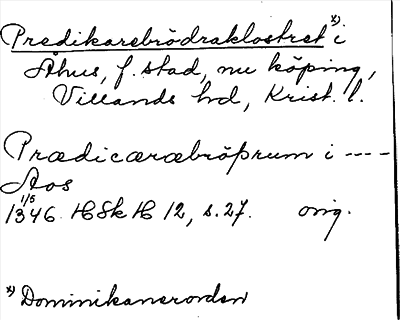 Predikarebrödraklostret x) i
Åhus, f. stad, nu köping,
Villands hd, Krist. l.
Prædicæræbröþrum i ----
Aos
1/5
1346 HSkH 12, s. 27. orig.
x) Dominikanerorden